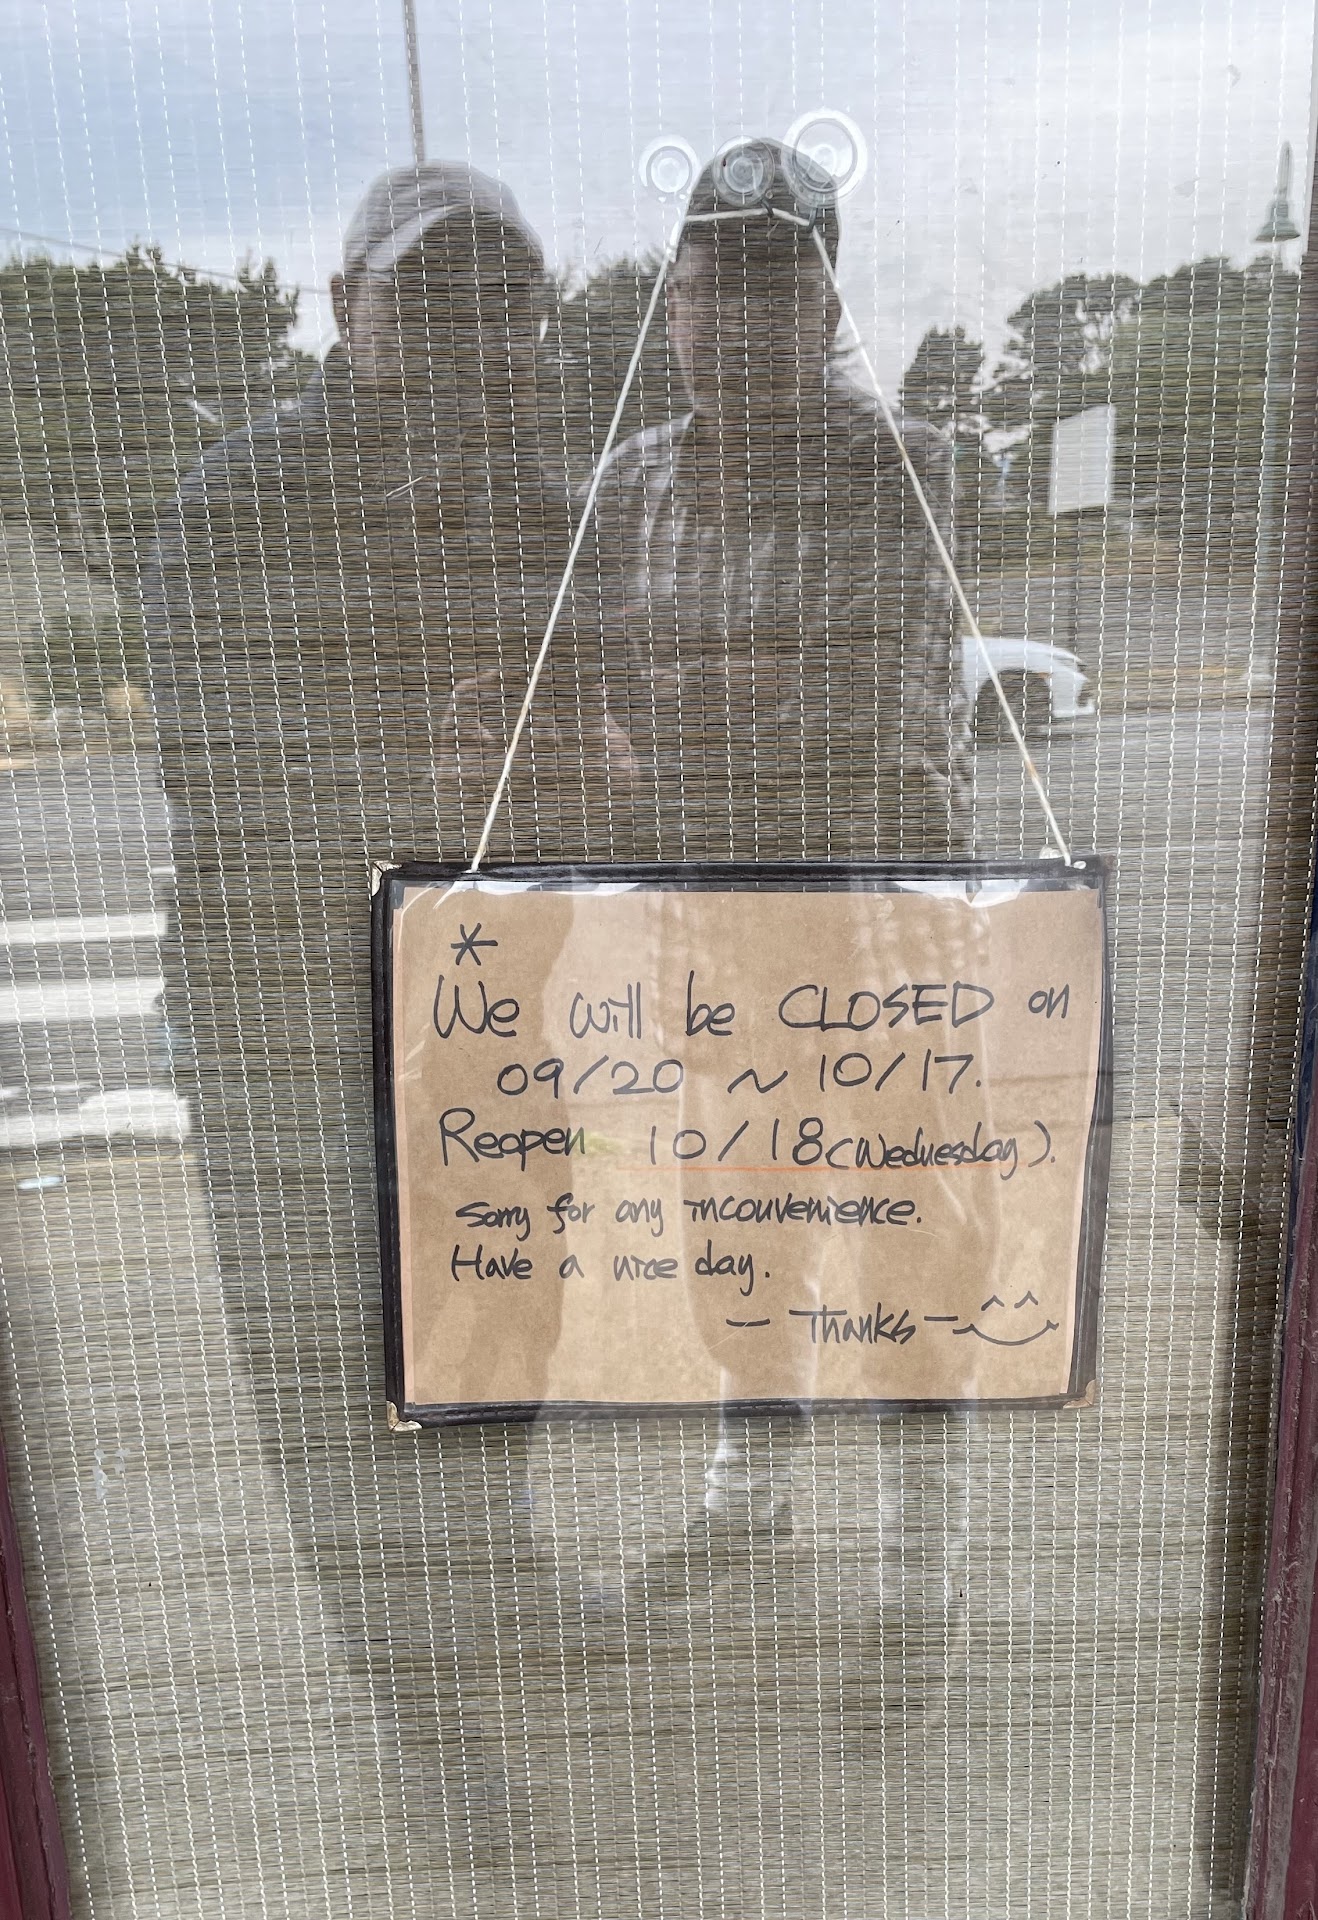 *
We will be CLOSED on
09/20 ~ 10/17.
Reopen 10/18 (Wednesday).
Sorry for any inconvenience.
Have a nice day.
- Thanks -